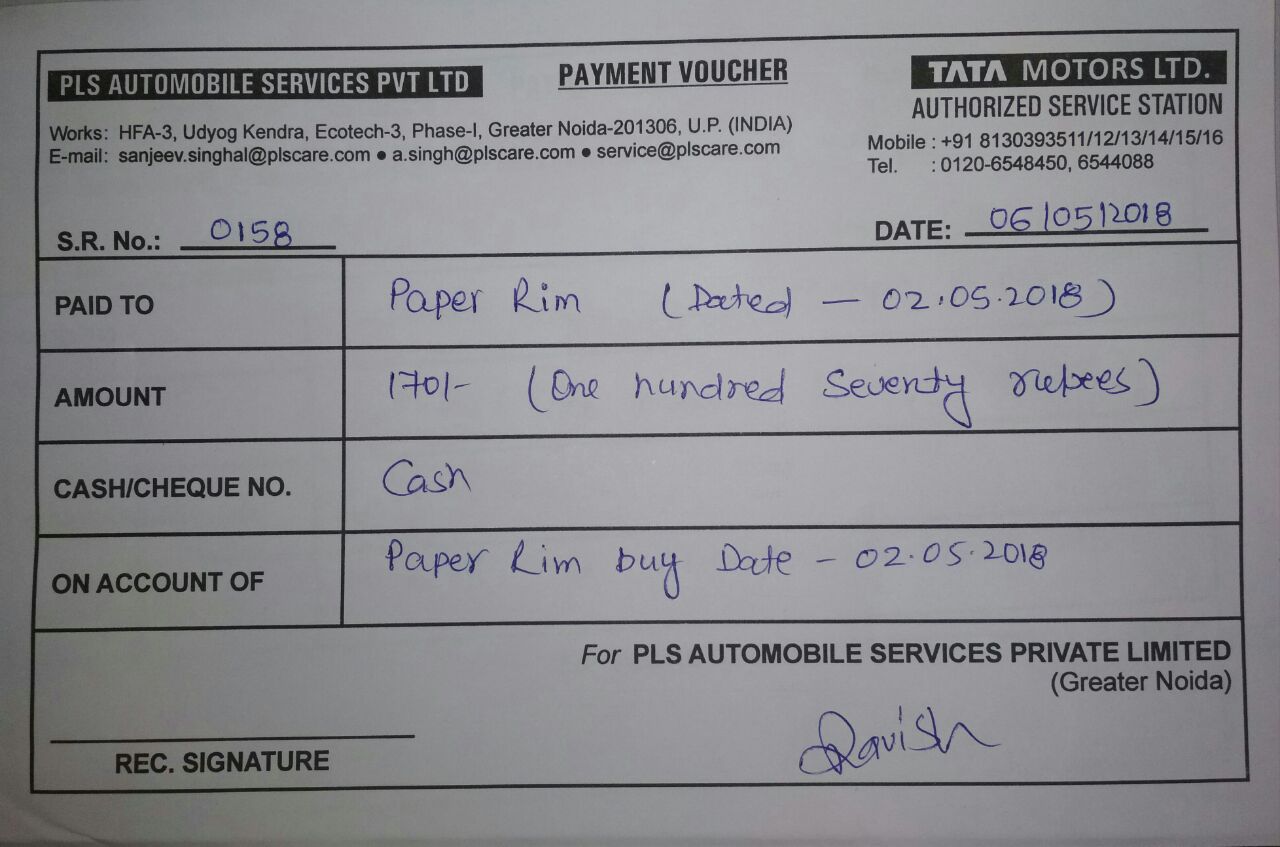 PLS AUTOMOBILE SERVICES PVT LTD
PAYMENT VOUCHER
TATA MOTORS LTD.
AUTHORIZED SERVICE STATION
Works: HFA-3, Udyog Kendra, Ecotech-3, Phase-I, Greater Noida-201306, U.P. (INDIA)
E-mail: sanjeev.singhal@plscare.com ● a.singh@plscare.com ● service@plscare.com
Mobile : +91 8130393511/12/13/14/15/16
Tel. : 0120-6548450, 6544088
S.R. No.: 0158
DATE: 06/05/2018
PAID TO Paper Rim (Dated – 02.05.2018)
AMOUNT 170/- (One hundred Seventy rupees)
CASH/CHEQUE NO. Cash
ON ACCOUNT OF Paper Rim buy Date – 02.05.2018
For PLS AUTOMOBILE SERVICES PRIVATE LIMITED
(Greater Noida)
Ravish
REC. SIGNATURE